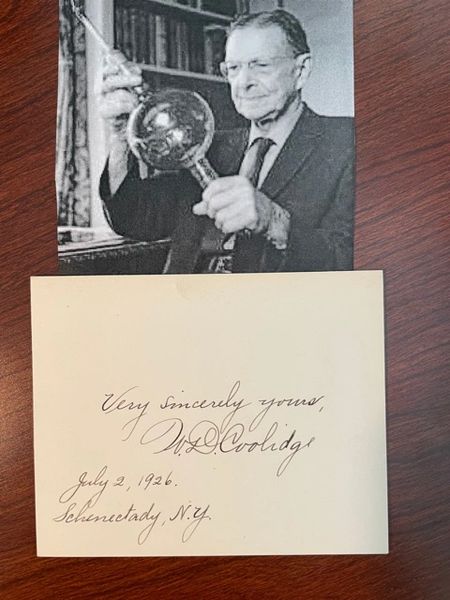 Very sincerely yours,
W.D. Coolidge
July 2, 1926.
Schenectady, N.Y.